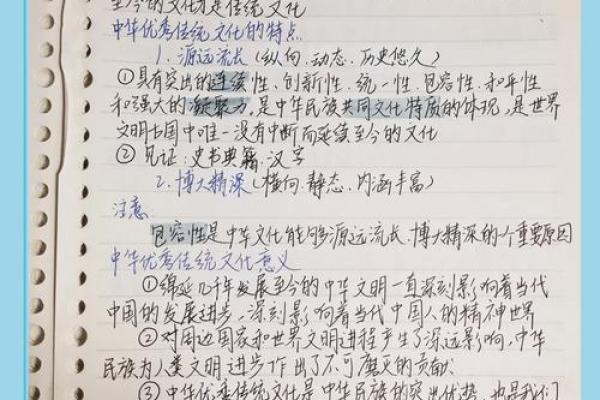 至今的文化才是传统文化
中华优秀传统文化的特点
1.源远流长(纵向.动态.历史悠久)
①具有突出的连续性、创新性.统一性.包容性、和平性
和强大的凝聚力.是中华民族共同文化特质的体现,是世界
文明古国中唯一没有中断而延续至今的文化
②见证:史书典籍.汉字
2.博大精深(横向.静态、内涵丰富)
注意:
包容性是中华文化能够源远流长、博大精深的个重要原因
中华优秀传统文化意义
①绵延几千年发展至今的中华文明一直深刻影响着当代
中国的发展进步,深刻影响着当代中国人的精神世界
②对周边国家和世界文明进程产生了深远影响,中华
民族为人类文明进步作出了不可磨灭的贡献
③中华优秀传统文化是中华民族的突出优势,也是我们